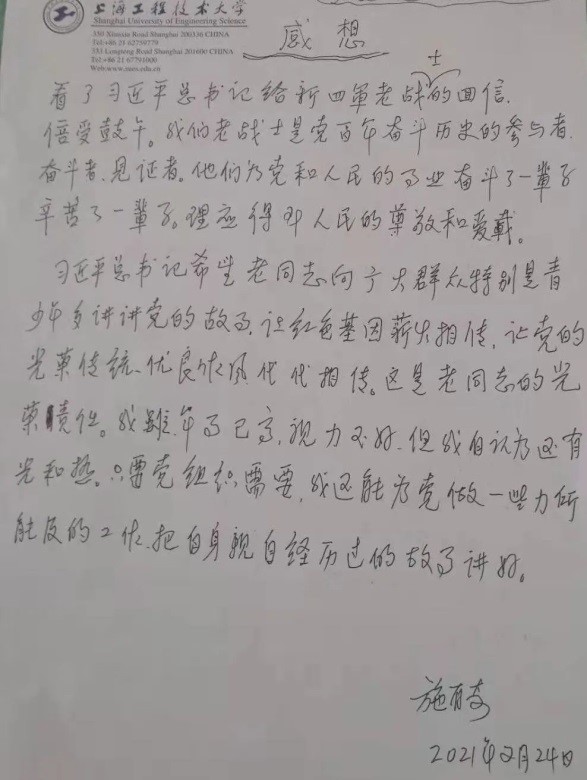 上海工程技术大学
Shanghai University of Engineering Science
350 Xianxia Road Shanghai 200336 CHINA
Tel:+86 21 62759779
333 Longteng Road Shanghai 201600 CHINA
Tel:+86 21 67791000
Web:www.sues.edu.cn
感想
士
看了习近平总书记给新四军老战的回信,
倍受鼓午。我们老战士是党百年奋斗历史的参与者,
奋斗者、见证者。他们为党和人民的事业奋斗了一辈子
辛苦了一辈子。理应得到人民的尊敬和爱戴。
习近平总书记希望老同志向广大群众特别是青
少年多讲讲党的故事,让红色基因薪火相传,让党的
光荣传统、优良作风代代相传。这是老同志的光
荣责任。我虽年事已高,视力不好,但我自认为还有
光和热。只要党组织需要,我还能为党做一些力所
能及的工作,把自身親自经历过的故事讲好。
2021年2月24日